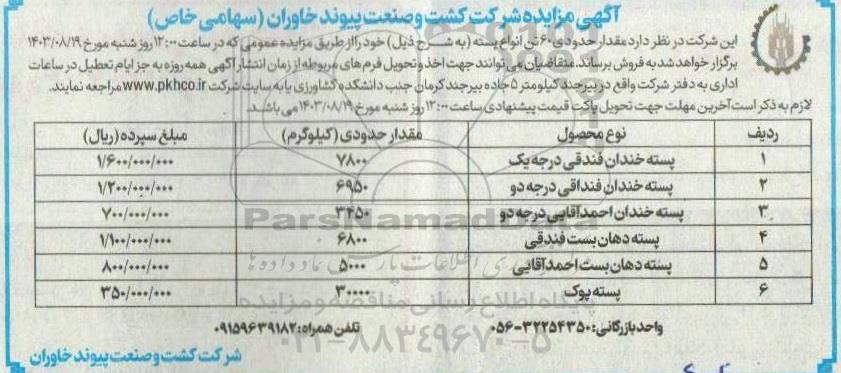 آگهی مزایده شرکت کشت و صنعت پیوند خاوران (سهامی خاص)
این شرکت در نظر دارد مقدار حدودی ۶۰ تن انواع پسته (به شرح ذیل) خود را از طریق مزایده عمومی که در ساعت ۱۲:۰۰ روز شنبه مورخ ۱۴۰۳/۰۸/۱۹
برگزار خواهد شد به فروش برساند. متقاضیان می توانند جهت اخذ و تحویل فرم های مربوطه از زمان انتشار آگهی همه روزه به جز ایام تعطیل در ساعات
اداری به دفتر شرکت واقع در بیرجند کیلومتر ۵ جاده بیرجند کرمان جنب دانشکده کشاورزی یا به سایت شرکت www.pkhco.ir مراجعه نمایند.
لازم به ذکر است آخرین مهلت جهت تحویل پاکت قیمت پیشنهادی ساعت ۱۲:۰۰ روز شنبه مورخ ۱۴۰۳/۰۸/۱۹ می باشد.
ردیف نوع محصول مقدار حدودی (کیلوگرم) مبلغ سپرده (ریال)
۱ پسته خندان فندقی درجه یک ۷۸۰۰ ۱/۶۰۰/۰۰۰/۰۰۰
۲ پسته خندان فنداقی درجه دو ۶۹۵۰ ۱/۲۰۰/۰۰۰/۰۰۰
۳ پسته خندان احمدآقایی درجه دو ۳۴۵۰ ۷۰۰/۰۰۰/۰۰۰
۴ پسته دهان بست فندقی ۶۸۰۰ ۱/۱۰۰/۰۰۰/۰۰۰
۵ پسته دهان بست احمدآقایی ۵۰۰۰ ۸۰۰/۰۰۰/۰۰۰
۶ پسته پوک ۳۰۰۰۰ ۳۵۰/۰۰۰/۰۰۰
ParsNamadData
پایگاه اطلاع رسانی مناقصه و مزایده
واحد بازرگانی: ۳۲۲۵۴۳۵۰-۰۵۶ تلفن همراه: ۰۹۱۵۹۶۳۹۱۸۲
۰۲۱-۸۸۳۴۹۶۷۰-۵
شرکت کشت و صنعت پیوند خاوران